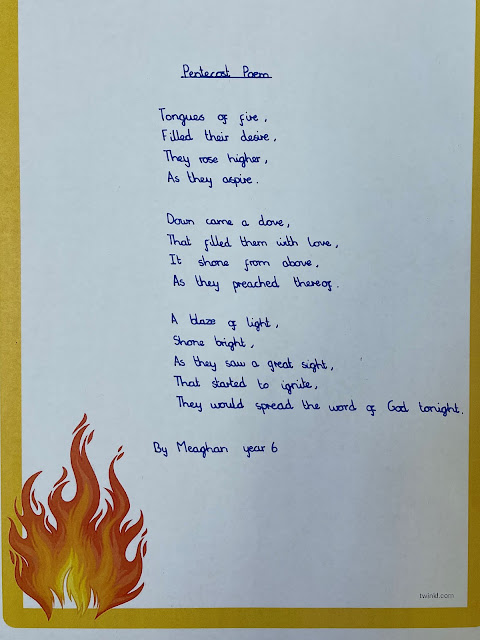 Pentecost Poem
Tongues of fire,
Filled their desire,
They rose higher,
As they aspire.
Down came a dove,
That filled them with love,
It shone from above,
As they preached thereof.
A blaze of light,
Shone bright,
As they saw a great sight,
That started to ignite,
They would spread the word of God tonight.
By Meaghan year 6
twinkl.com